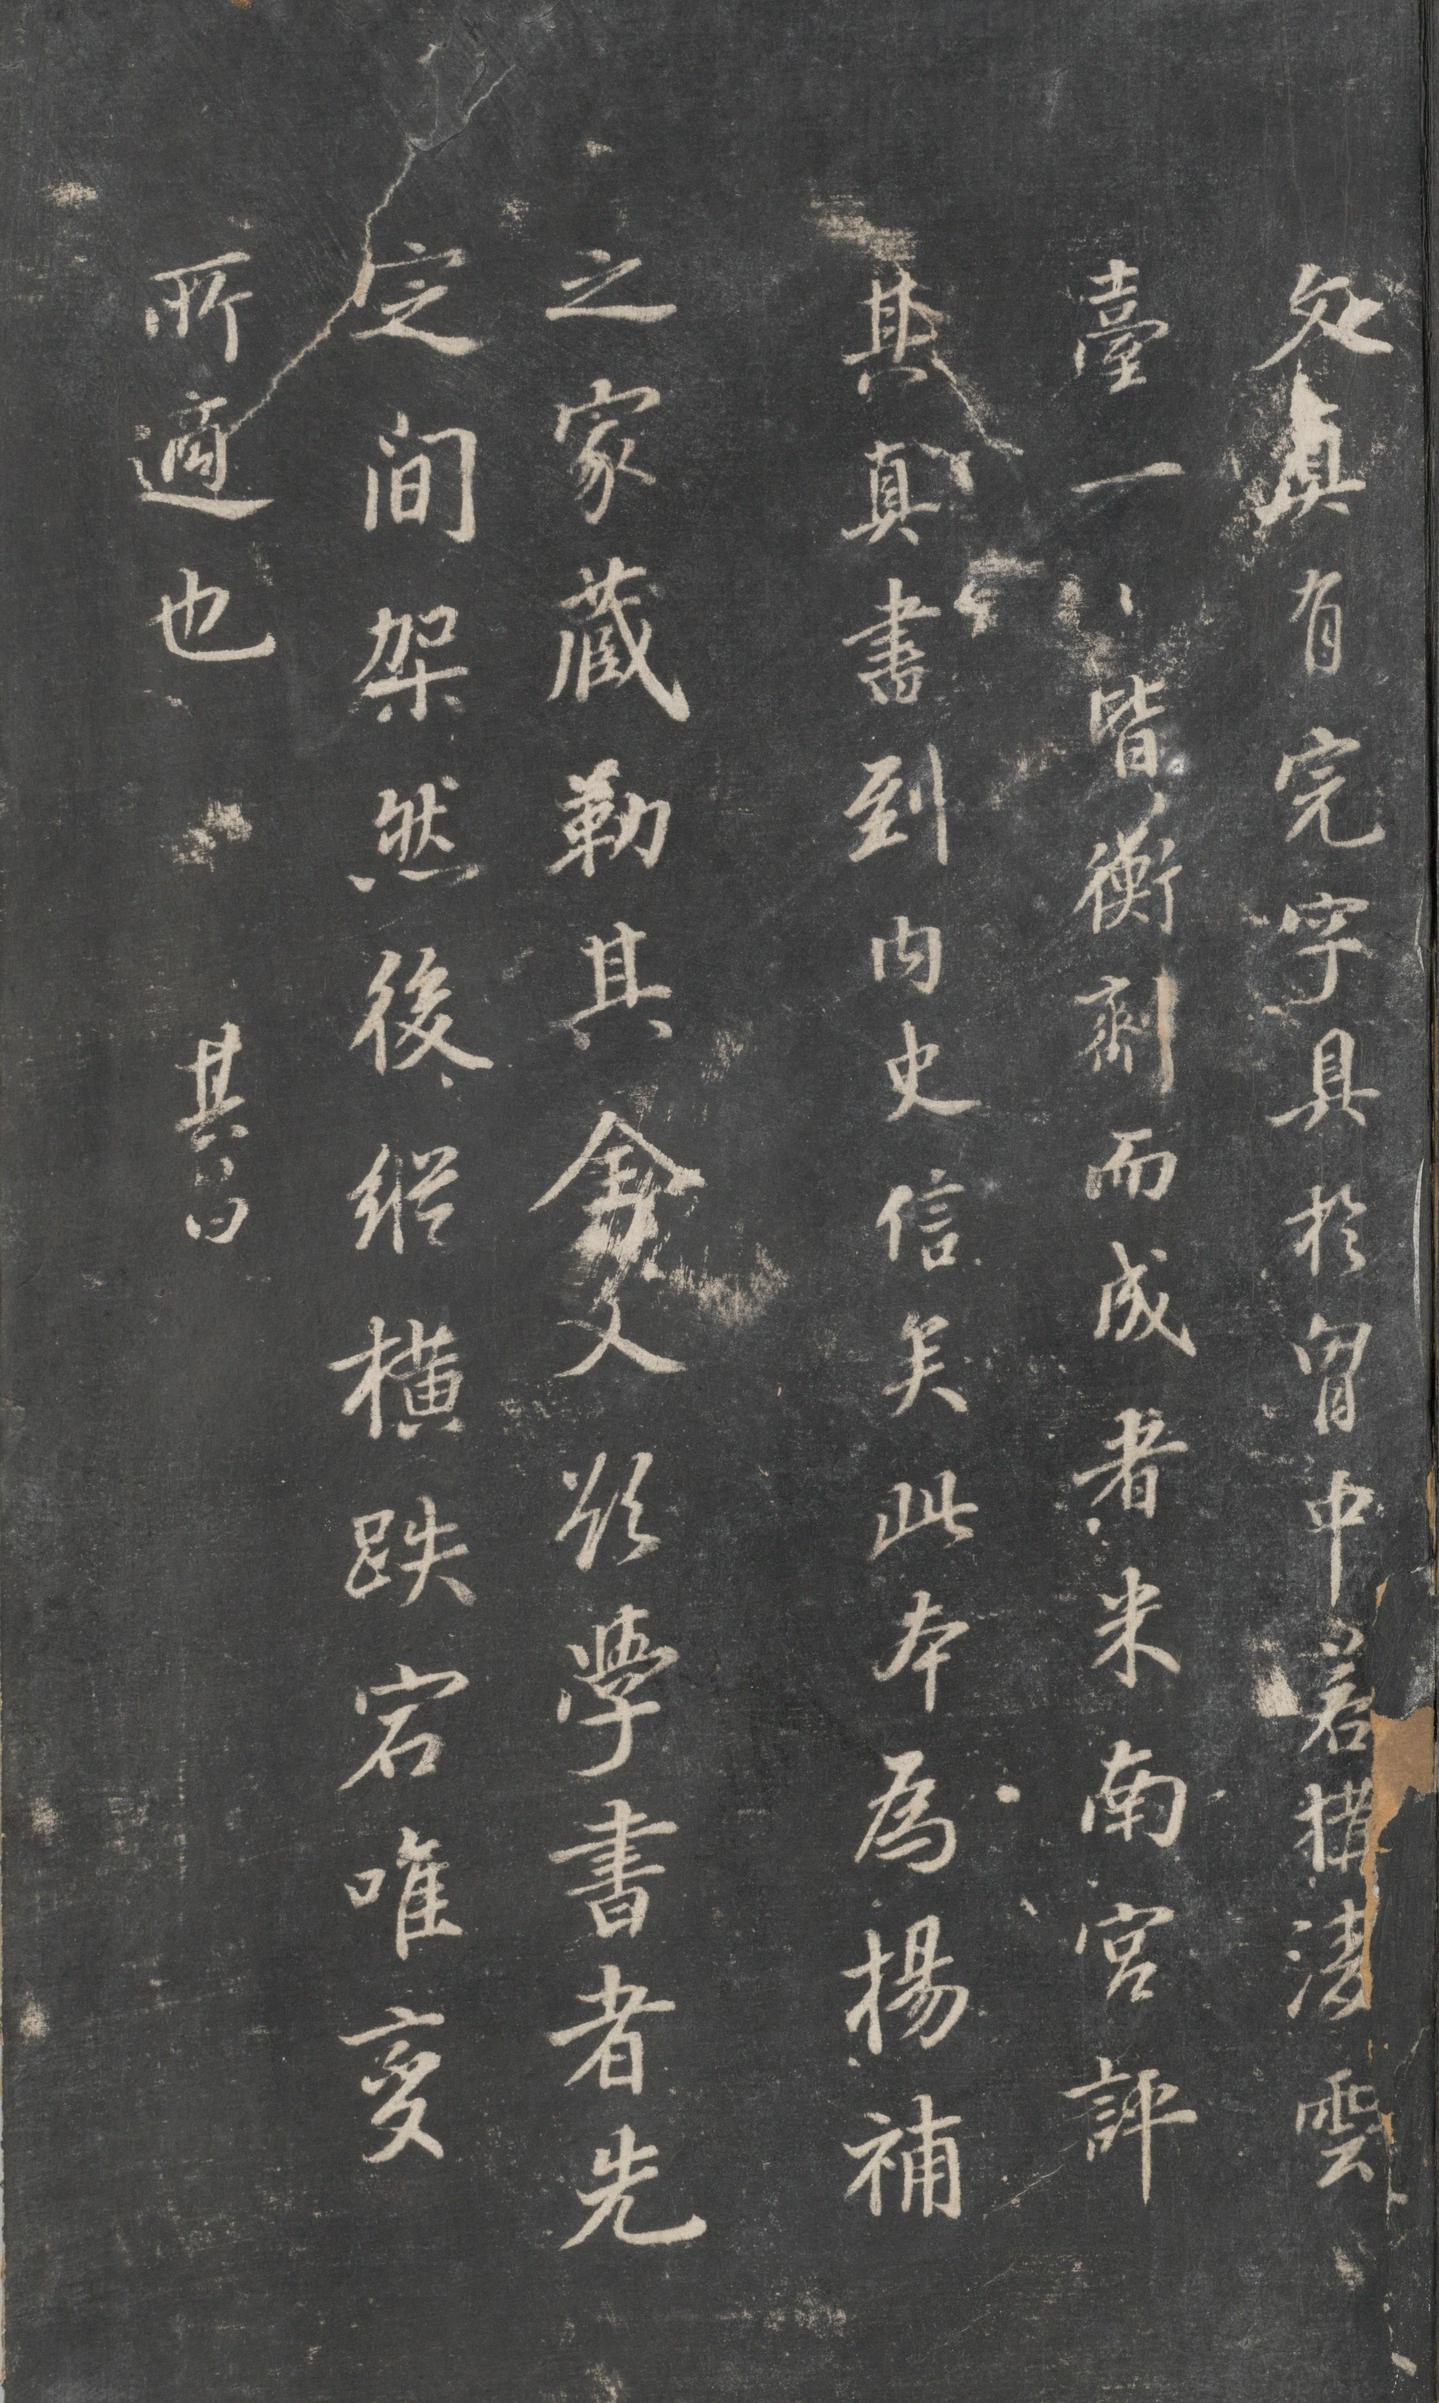 处真有完字具於胷中若構凌雲
臺一〻皆衡劑而成者米南宮評
其真書到內史信矣此本為楊補
之家藏勒其全文欲學書者先
定间架然後縱橫跌宕唯変
所適也 其昌